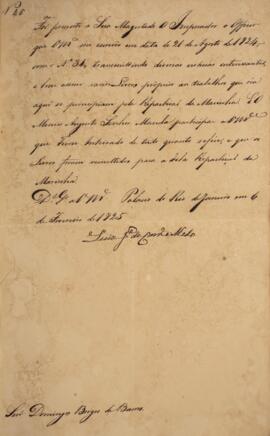 Foi presente a Sua Magestade O Imperador o Officio
que V S.ª me enviou em data de 21 de Agosto de 1824,
com o N.º 31, transmittindo diversas noticias interessantes,
e bem assim varios Livros proprios ao trabalho que
aqui se principiam pela Repartiçaõ da Marinha: E O
Mesmo Augusto Senhor Manda participar a V S.ª
que Ficou Inteirado de tudo quanto refere, e que os
Livros foram remettidos para a dita Repartiçaõ da
Marinha.
D.s G.e a V S.ª Palacio do Rio de Janeiro em 6
de Fevereiro de 1825
Luiz J.e de Carv.º e Mello
Snr. Domingos Borges de Barros.